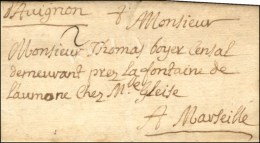 d'Avignon A Monsieur
2
Monsieur Thomas boyer Censal
demeurant prez la fontaine de
laumone chez Mr gleise
A Marseille